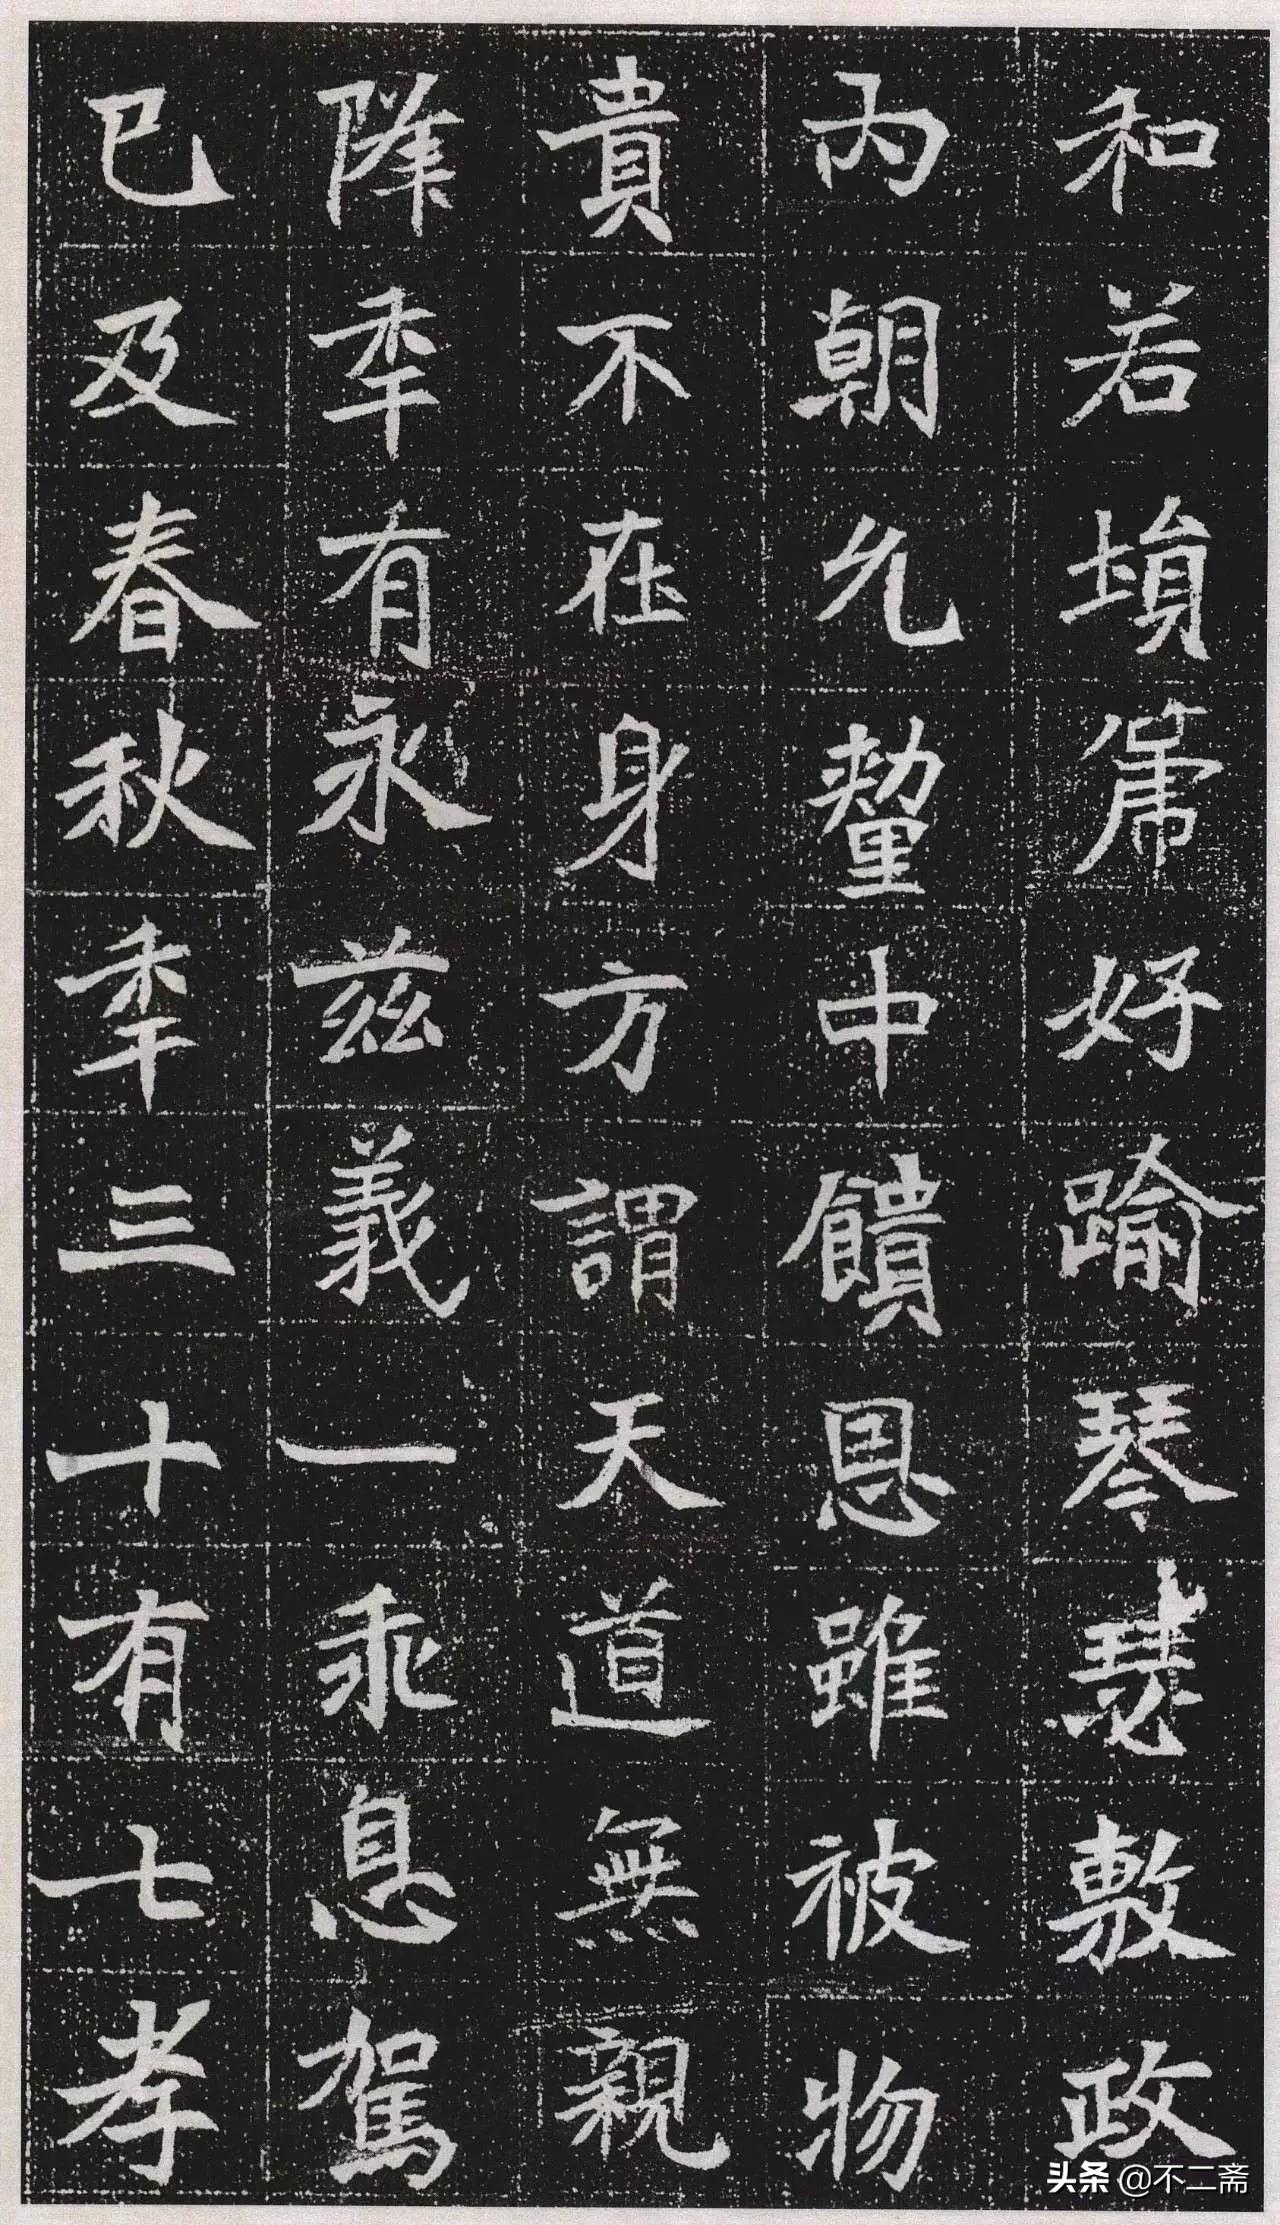 和若塤箎好踰琴瑟敷政
內朝允釐中饋恩雖被物
貴不在身方謂天道無親
降秊有永茲義一乖息駕
已及春秋秊三十有七孝
头条 @不二斋